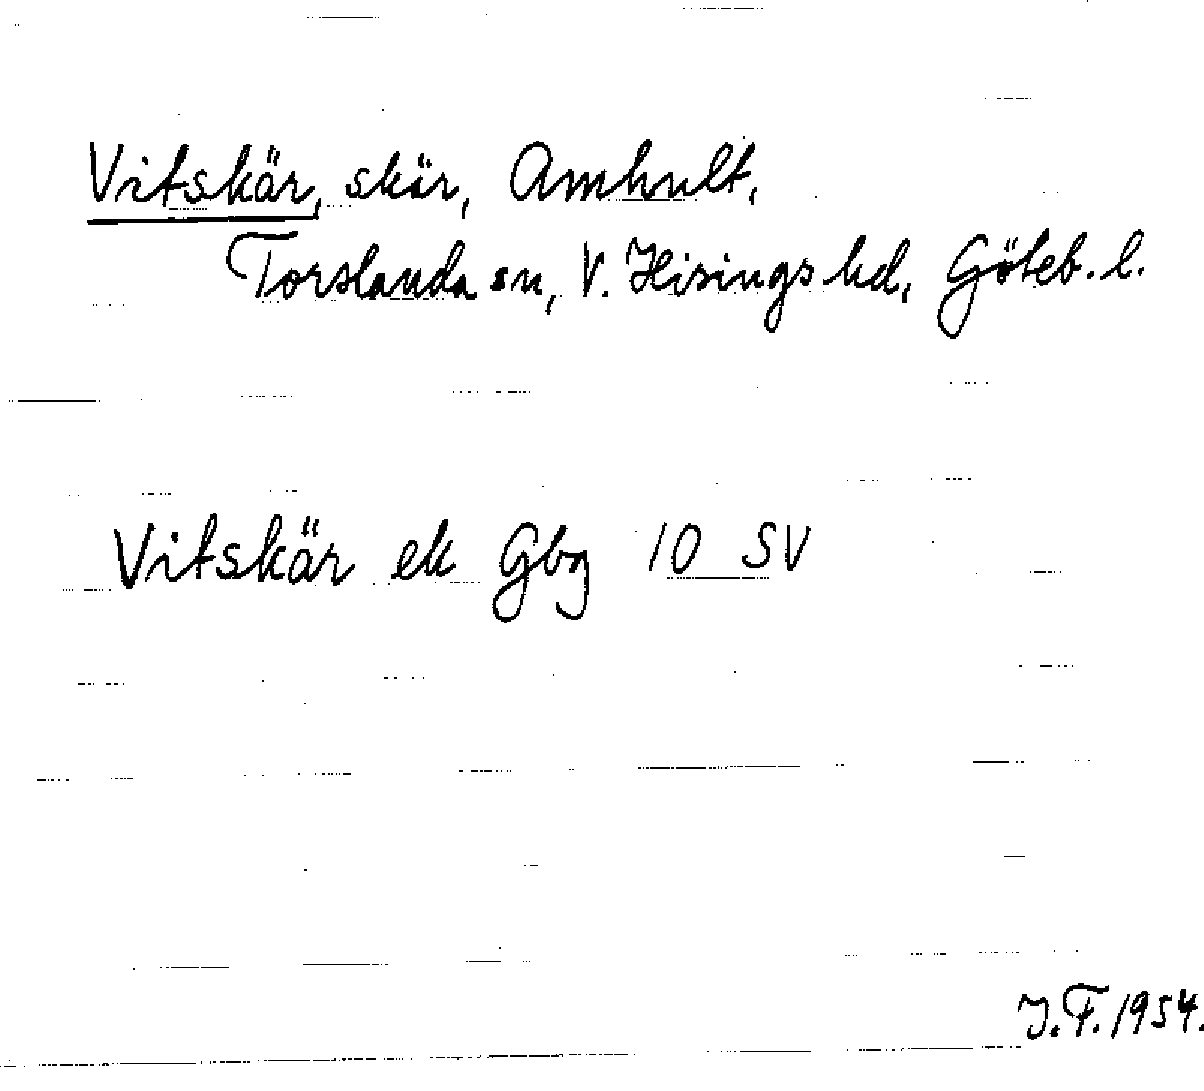 Vitskär, skär, Amhult,
Torslanda sn, V. Hisings hd, Göteb. l.
Vitskär ek Gbg 10 SV
J.F. 1954.